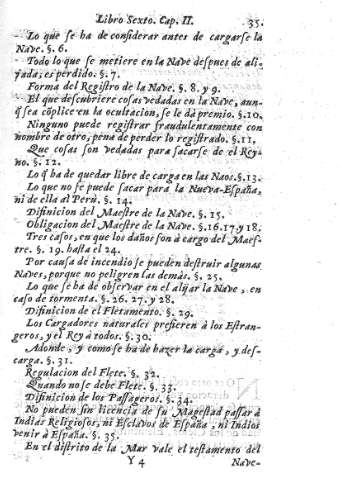 Libro Sexto. Cap. II. 35.
Lo que se ha de considerar antes de cargarse la
Nave. §. 6.
Todo lo que se metiere en la Nave despues de ali-
jada, es perdido. §. 7.
Forma del Registro de la Nave. §. 8. y 9.
El que descubriere cosas vedadas en la Nave, aun-
q̃ sea cõplice en la ocultacion, se le dà premio. §. 10.
Ninguno puede registrar fraudulentamente con
nombre de otro, pena de perder lo registrado. §. 11.
Que cosas son vedadas para sacarse de el Rey-
no. §. 12.
Lo q̃ ha de quedar libre de carga en las Naos. §. 13.
Lo que no se puede sacar para la Nueva-España,
ni de ella al Perù. §. 14.
Difinicion del Maestre de la Nave. §. 15.
Obligacion del Maestre de la Nave. §. 16. 17 y 18.
Tres casos, en que los daños son à cargo del Maes-
tre. §. 19. hasta el 24.
Por causa de incendio se pueden destruir algunas
Naves, porque no peligren las demàs. §. 25.
Lo que se ha de observar en el alijar la Nave, en
caso de tormenta. §. 26. 27. y 28.
Difinicion de el Fletamento. §. 29.
Los Cargadores naturales prefieren à los Estran-
geros, y el Rey à todos. §. 30.
Adonde, y como se ha de hazer la carga, y des-
carga. §. 31.
Regulacion del Flete. §. 32.
Quando no se debe Flete. §. 33.
Difinicion de los Passageros. §. 34.
No pueden sin licencia de su Magestad passar à
Indias Religiosos, ni Esclavos de España, ni Indios
venir à España. §. 35.
En el distrito de la Mar vale el testamento del
Y 4 Nave-